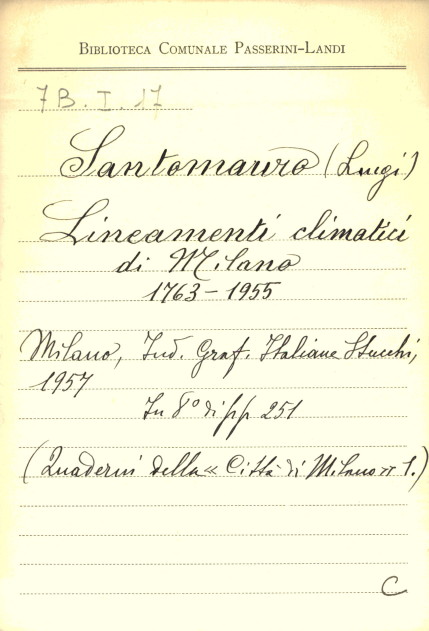 BIBLIOTECA COMUNALE PASSERINI-LANDI
7B. I. 17
Santomauro (Luigi)
Lineamenti climatici
di Milano
1763-1955
Milano, Ind. Graf. Italiane Stucchi,
1957
In 8° di pp 251
(Quaderni della « Città di Milano » 1.)
C